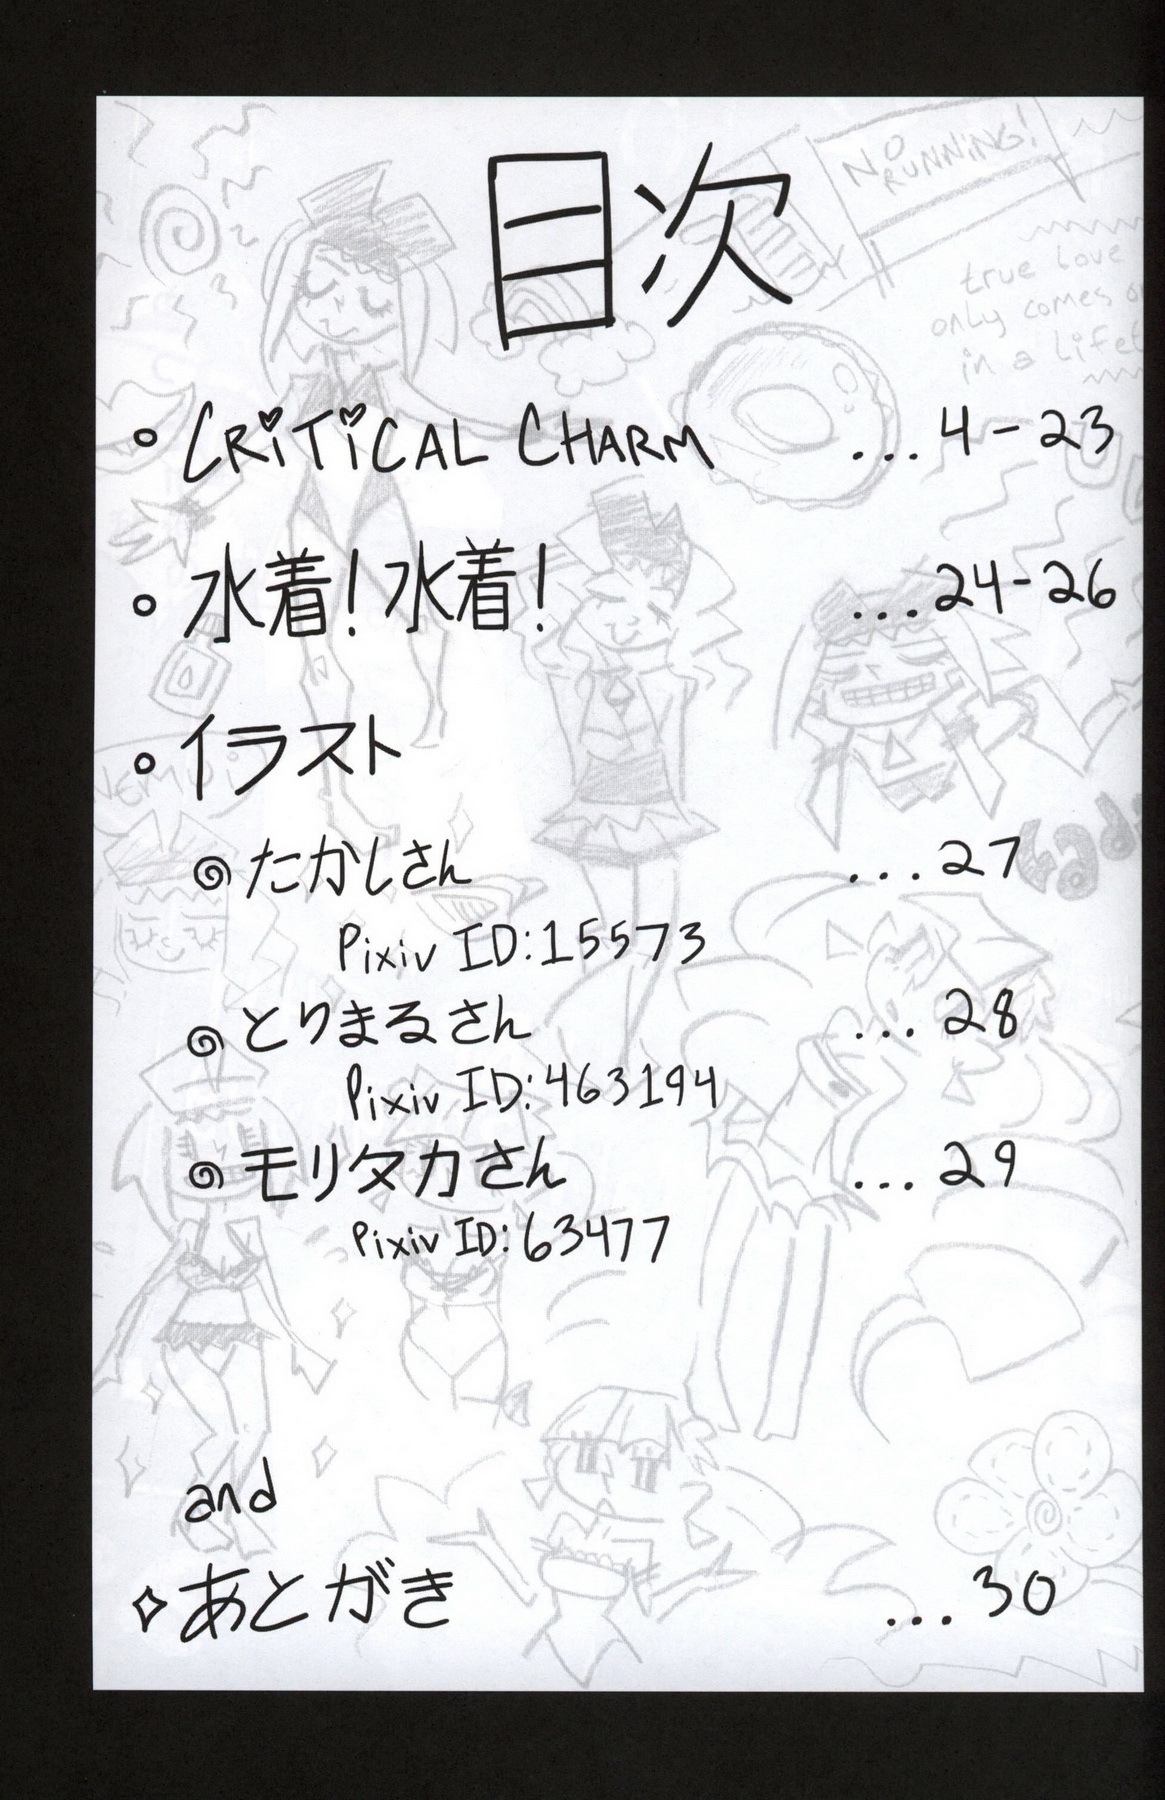 目次
NO RUNNING!
true love
only comes
in a
• CRiTiCAL CHARM ...4-23
• 水着!水着! ...24-26
• イラスト
たかしさん ...27
Pixiv ID:15573
とりまるさん ...28
Pixiv ID:463194
モリタカさん ...29
Pixiv ID:63477
and
✧あとがき ...30